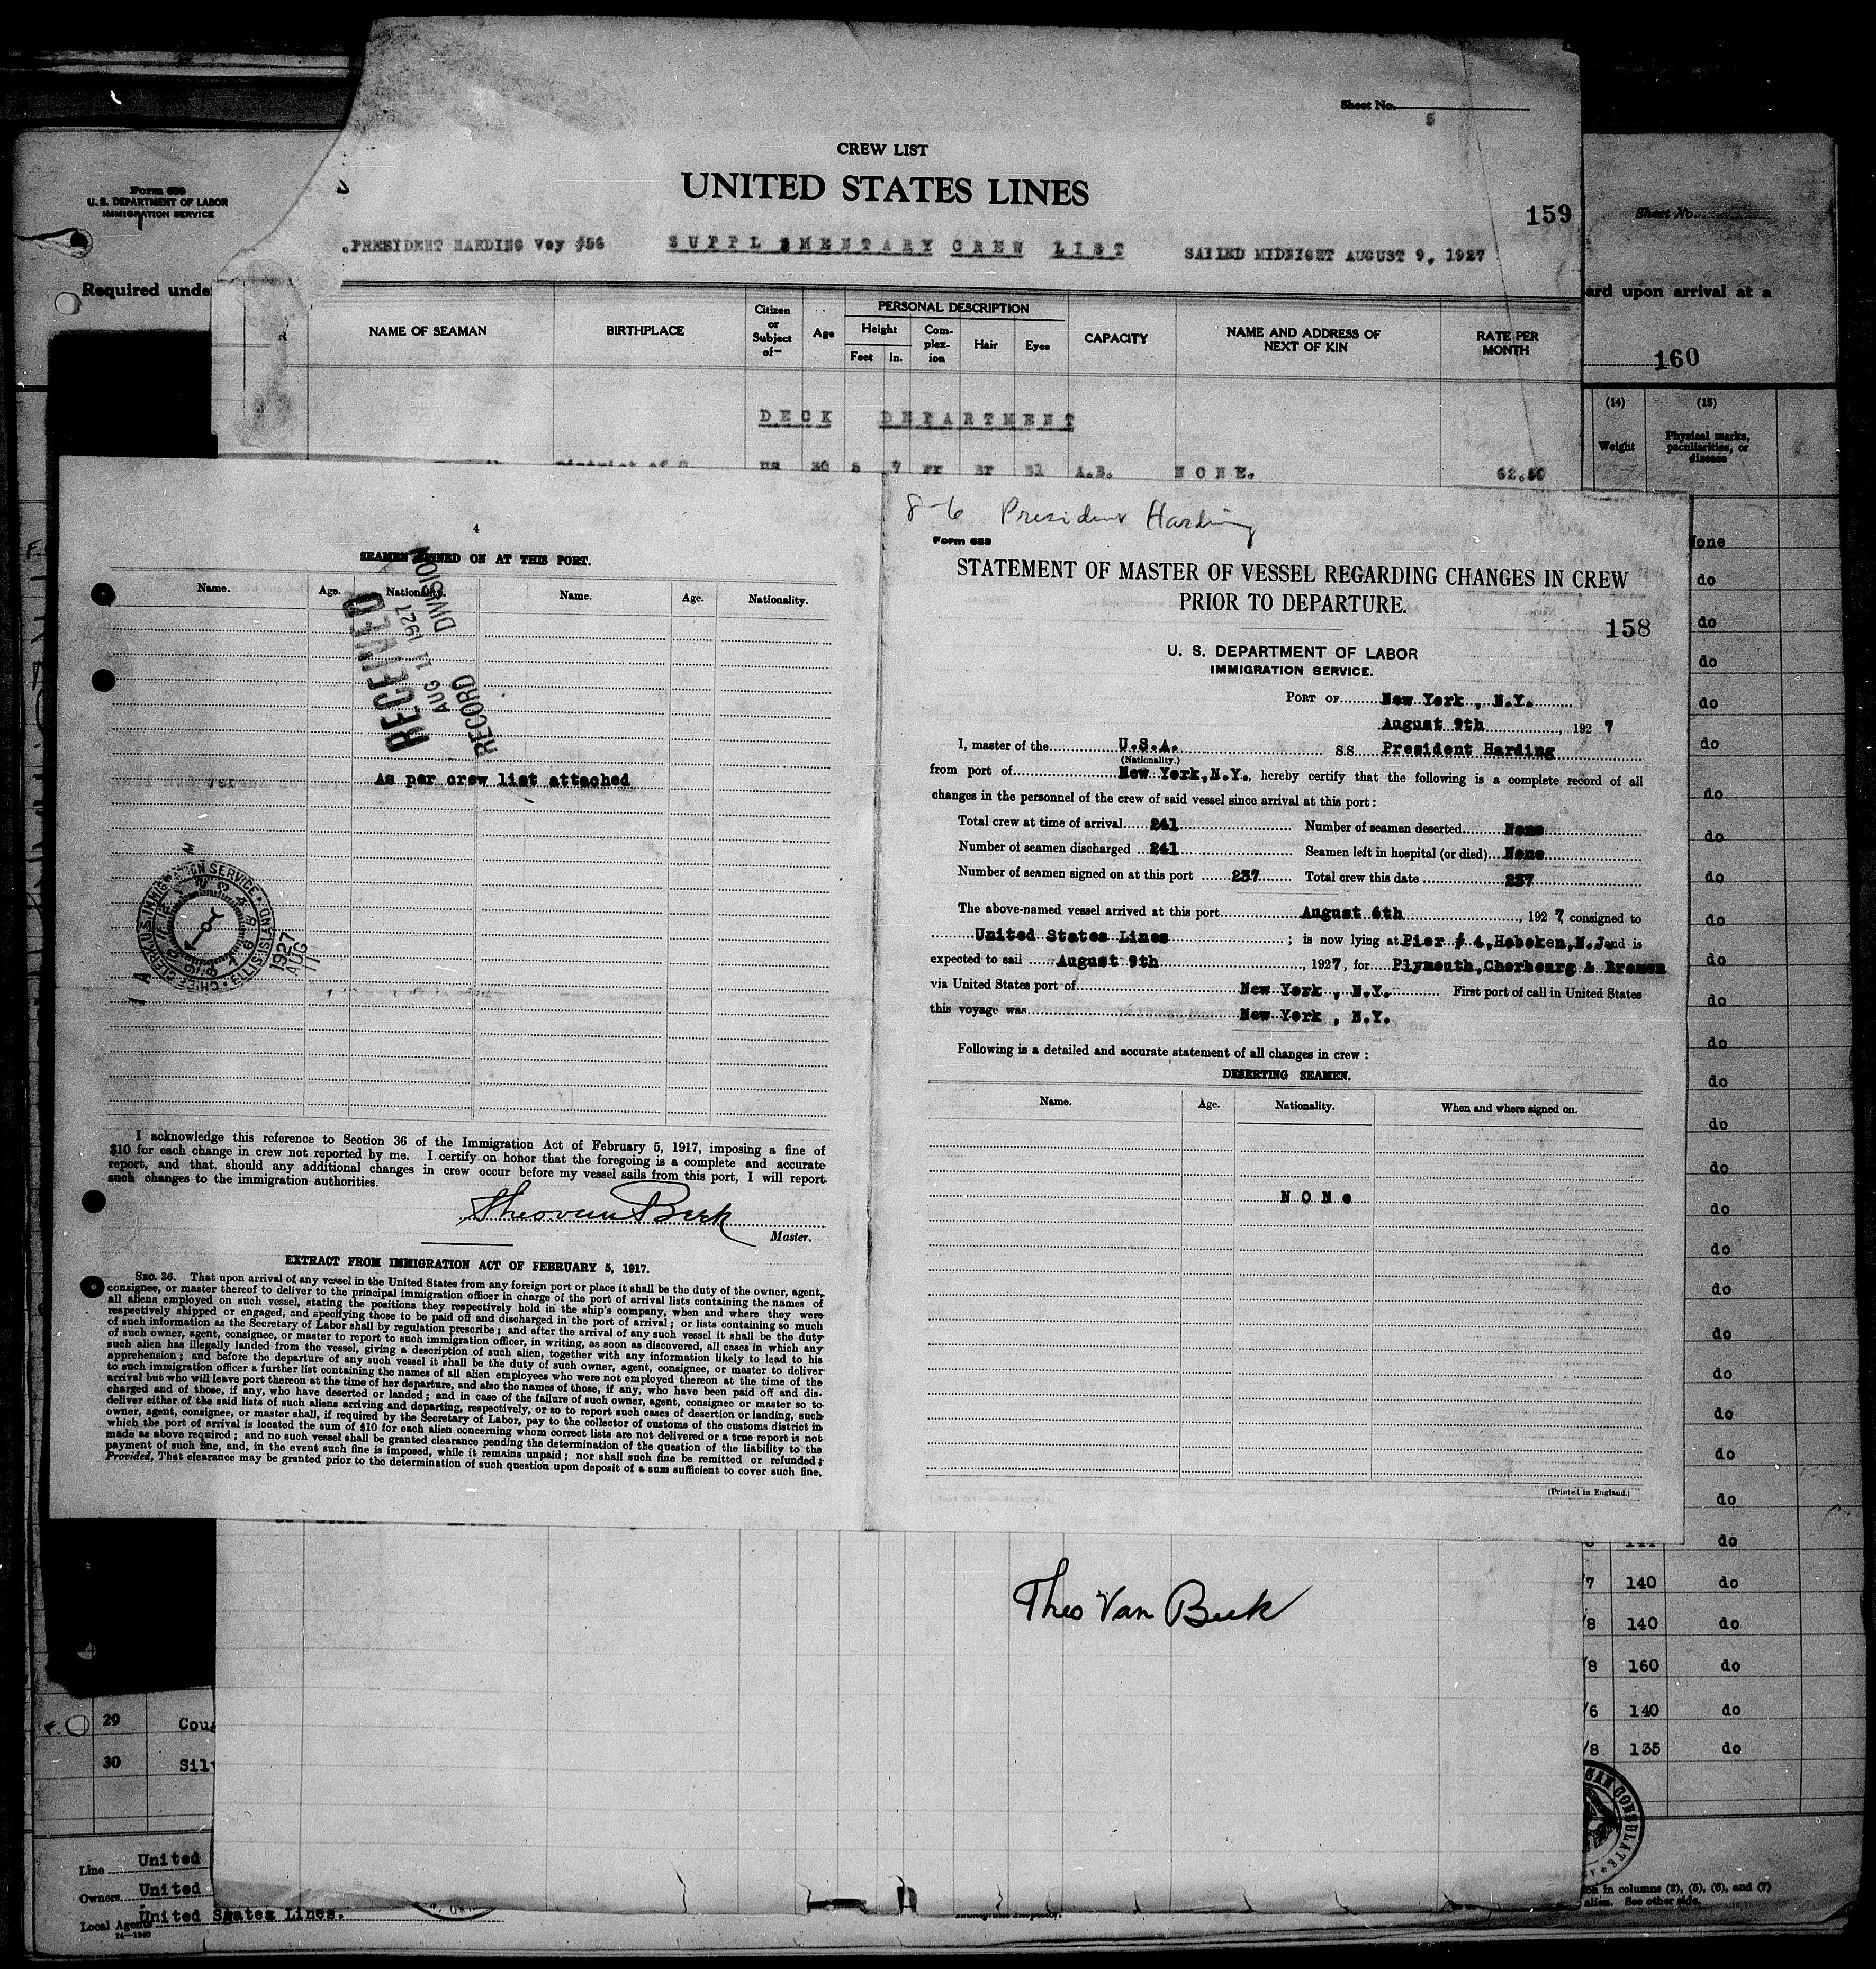 Sheet No.
CREW LIST
UNITED STATES LINES
159
PRESIDENT HARDING Voy #56 SUPPLEMENTARY CREW LIST SAILED MIDNIGHT AUGUST 9, 1927
NAME OF SEAMAN BIRTHPLACE Citizen or Subject of— Age PERSONAL DESCRIPTION Height Feet In. Complexion Hair Eyes CAPACITY NAME AND ADDRESS OF NEXT OF KIN RATE PER MONTH
DECK DEPARTMENT
US 30 5 7 Fr Br Bl A.B. NONE. 62.50
Form 689
U.S. DEPARTMENT OF LABOR
IMMIGRATION SERVICE
Required unde
Sheet No.
ard upon arrival at a
160
(14) (15)
Weight Physical marks, peculiarities, or disease
4
SEAMEN SIGNED ON AT THIS PORT.
Name. Age. Nationality. Name. Age. Nationality.
RECEIVED
AUG 11 1927
RECORD DIVISION
As per crew list attached
CHIEF CLERK U.S. IMMIGRATION SERVICE · ELLIS ISLAND
1927
AUG
11
I acknowledge this reference to Section 36 of the Immigration Act of February 5, 1917, imposing a fine of
$10 for each change in crew not reported by me. I certify on honor that the foregoing is a complete and accurate
report, and that should any additional changes in crew occur before my vessel sails from this port, I will report
such changes to the immigration authorities.
Theo van Beek
Master.
EXTRACT FROM IMMIGRATION ACT OF FEBRUARY 5, 1917.
SEC. 36. That upon arrival of any vessel in the United States from any foreign port or place it shall be the duty of the owner, agent,
consignee, or master thereof to deliver to the principal immigration officer in charge of the port of arrival lists containing the names of
all aliens employed on such vessel, stating the positions they respectively hold in the ship's company, when and where they were
respectively shipped or engaged, and specifying those to be paid off and discharged in the port of arrival; or lists containing so much
of such information as the Secretary of Labor shall by regulation prescribe; and after the arrival of any such vessel it shall be the duty
of such owner, agent, consignee, or master to report to such immigration officer, in writing, as soon as discovered, all cases in which any
such alien has illegally landed from the vessel, giving a description of such alien, together with any information likely to lead to his
apprehension; and before the departure of any such vessel it shall be the duty of such owner, agent, consignee, or master to deliver
to such immigration officer a further list containing the names of all alien employees who were not employed thereon at the time of the
arrival but who will leave port thereon at the time of her departure, and also the names of those, if any, who have been paid off and dis-
charged and of those, if any, who have deserted or landed; and in case of the failure of such owner, agent, consignee or master so to
deliver either of the said lists of such aliens arriving and departing, respectively, or so to report such cases of desertion or landing, such
owner, agent, consignee, or master shall, if required by the Secretary of Labor, pay to the collector of customs of the customs district in
which the port of arrival is located the sum of $10 for each alien concerning whom correct lists are not delivered or a true report is not
made as above required; and no such vessel shall be granted clearance pending the determination of the question of the liability to the
payment of such fine, and, in the event such fine is imposed, while it remains unpaid; nor shall such fine be remitted or refunded:
Provided, That clearance may be granted prior to the determination of such question upon deposit of a sum sufficient to cover such fine.
8-6 President Harding
Form 689
STATEMENT OF MASTER OF VESSEL REGARDING CHANGES IN CREW
PRIOR TO DEPARTURE.
158
U. S. DEPARTMENT OF LABOR
IMMIGRATION SERVICE.
PORT OF New York, N.Y.
August 9th, 1927
I, master of the U.S.A. SS. President Harding
(Nationality.)
from port of New York, N.Y., hereby certify that the following is a complete record of all
changes in the personnel of the crew of said vessel since arrival at this port:
Total crew at time of arrival 241 Number of seamen deserted None
Number of seamen discharged 241 Seamen left in hospital (or died) None
Number of seamen signed on at this port 237 Total crew this date 237
The above-named vessel arrived at this port August 6th, 1927, consigned to
United States Lines; is now lying at Pier # 4, Hoboken, N.J. and is
expected to sail August 9th, 1927, for Plymouth, Cherbourg & Bremen
via United States port of New York, N.Y. First port of call in United States
this voyage was New York, N.Y.
Following is a detailed and accurate statement of all changes in crew:
DESERTING SEAMEN.
Name. Age. Nationality. When and where signed on.
NONe
(Printed in England.)
None
do
do
do
do
do
do
do
do
do
do
do
do
do
do
do
do
do
do
do
do
do
do
do
do
/7 140 do
/8 140 do
/8 160 do
/6 140 do
/8 135 do
Theo Van Beek
29 Coug
30 Silv
Line United
Owners United
Local Agents United States Lines.
14—1240
on in columns (2), (5), (6), and (7)
alien. See other side.